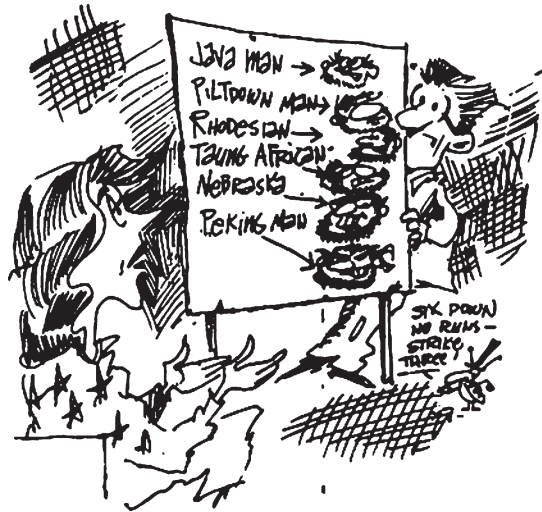 JAVA MAN
PILTDOWN MAN
RHODESIAN
TAUNG AFRICAN
NEBRASKA
PEKING MAN
SIX DOWN
NO RUNS -
STRIKE
THREE!